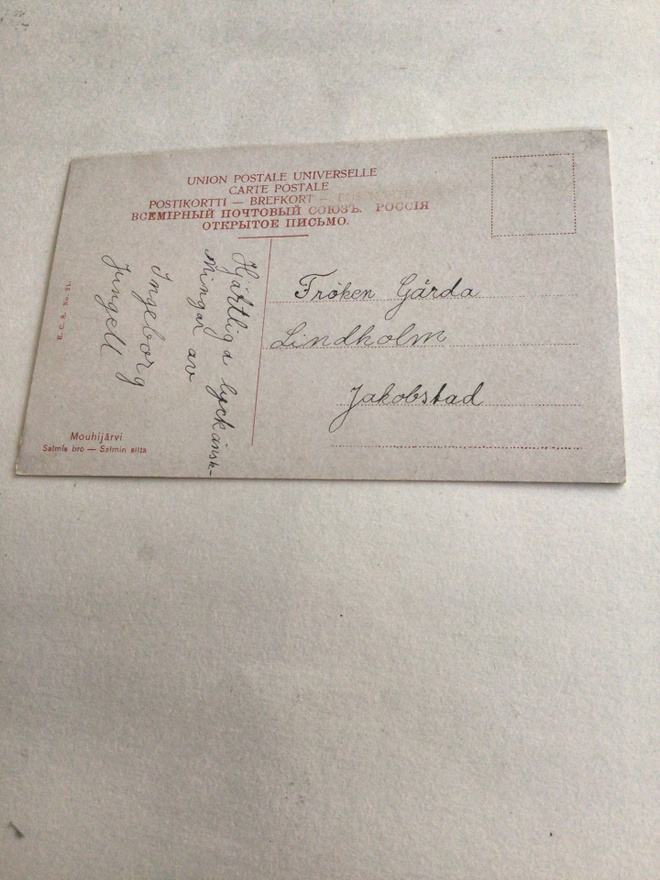 UNION POSTALE UNIVERSELLE
CARTE POSTALE
POSTIKORTTI — BREFKORT
ВСЕМІРНЫЙ ПОЧТОВЫЙ СОЮЗЪ. РОССІЯ
ОТКРЫТОЕ ПИСЬМО.
Hjärtliga lyckönsk-
ningar av
Ingeborg
Jungell
Fröken Gärda
Lindholm
Jakobstad
Mouhijärvi
Salmis bro — Salmin silta